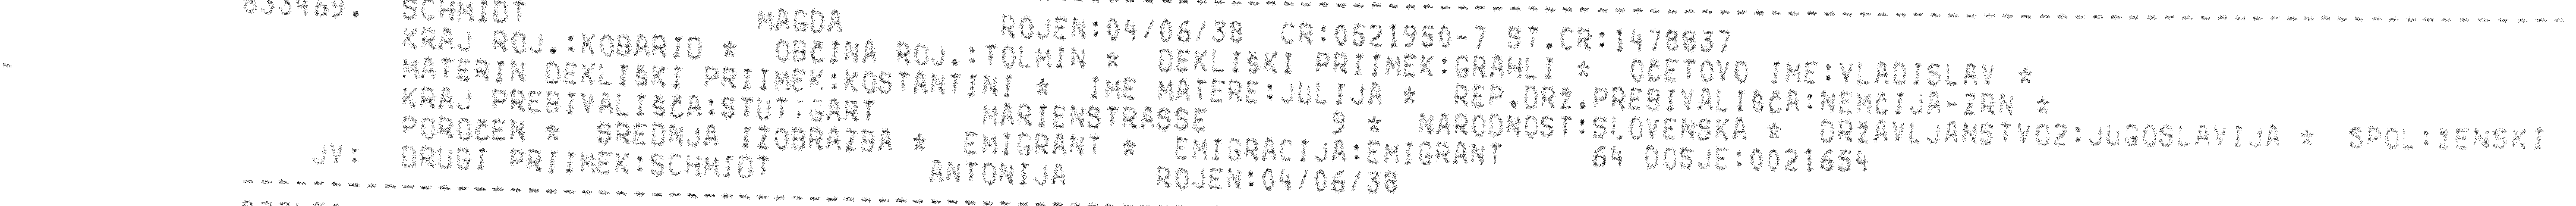 833469. SCHMIDT MAGDA ROJEN:04/06/38 CR:0521950-7 ST.CR:1478837
KRAJ ROJ.:KOBARID * OBČINA ROJ.:TOLMIN * DEKLIŠKI PRIIMEK:GRAHLI * OČETOVO IME:VLADISLAV *
MATERIN DEKLIŠKI PRIIMEK:KOSTANTINI * IME MATERE:JULIJA * REP.DRŽ.PREBIVALIŠČA:NEMČIJA-ZRN *
KRAJ PREBIVALIŠČA:STUTTGART MARIENSTRASSE 9 * NARODNOST:SLOVENSKA * DRŽAVLJANSTVO2:JUGOSLAVIJA * SPOL:ŽENSKI
POROČEN * SREDNJA IZOBRAZBA * EMIGRANT * EMIGRACIJA:EMIGRANT 64 DOSJE:0021654
JV: DRUGI PRIIMEK:SCHMIDT ANTONIJA ROJEN:04/06/38